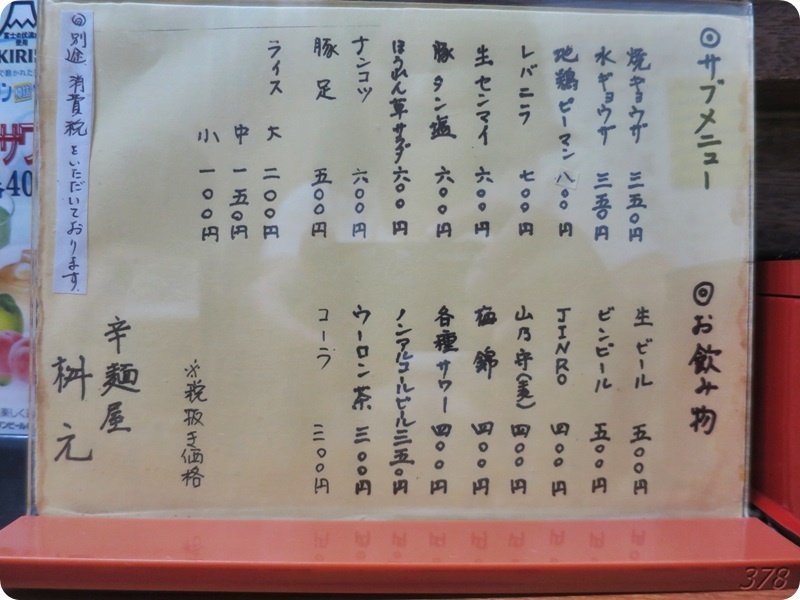 ◎サブメニュー
焼ギョウザ 三五〇円
水ギョウザ 三五〇円
地鶏ピーマン 八〇〇円
レバニラ 七〇〇円
生センマイ 六〇〇円
豚タン塩 六〇〇円
ほうれん草サラダ 六〇〇円
ナンコツ 六〇〇円
豚足 五〇〇円
ライス 大 二〇〇円
中 一五〇円
小 一〇〇円
◎お飲み物
生ビール 五〇〇円
ビンビール 五〇〇円
JINRO 四〇〇円
山乃守(麦) 四〇〇円
梅錦 四〇〇円
各種サワー 四〇〇円
ノンアルコールビール 三五〇円
ウーロン茶 三〇〇円
コーラ 二〇〇円
※税抜き価格
辛麺屋
桝元
◎別途、消費税をいただいております。
KIRI
378